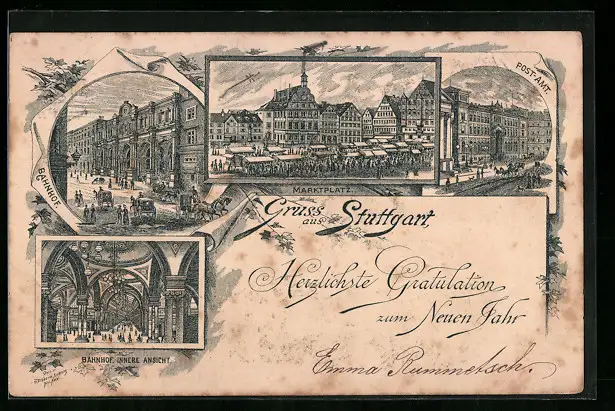 BAHNHOF.
MARKTPLATZ.
POST-AMT.
Gruss aus Stuttgart,
BAHNHOF, INNERE ANSICHT.
Herzlichste Gratulation
zum Neuen Jahr
Emma Rummetsch.